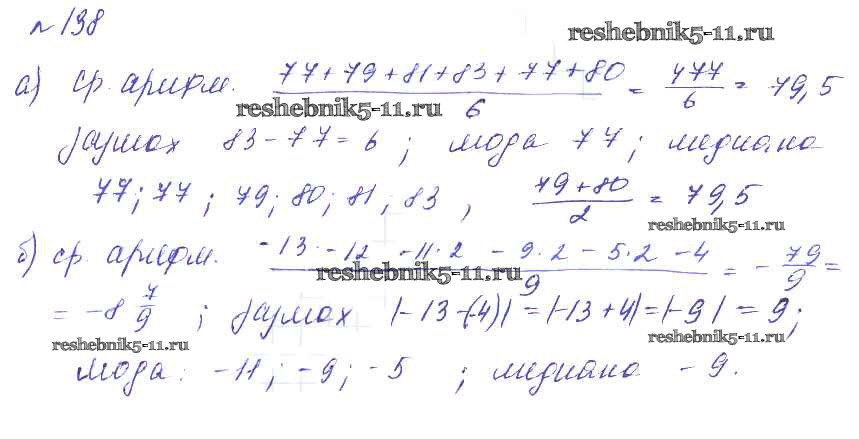 № 138
reshebnik5-11.ru
а) ср. арифм. (77+79+81+83+77+80)/6 = 477/6 = 79,5
reshebnik5-11.ru
размах 83-77=6; мода 77; медиана
77; 77; 79; 80; 81; 83, (79+80)/2 = 79,5
reshebnik5-11.ru
б) ср. арифм. (-13-12-11·2-9·2-5·2-4)/9 = -79/9 =
reshebnik5-11.ru
= -8 7/9; размах |-13-(-4)| = |-13+4| = |-9| = 9;
reshebnik5-11.ru
reshebnik5-11.ru
мода: -11; -9; -5; медиана -9.